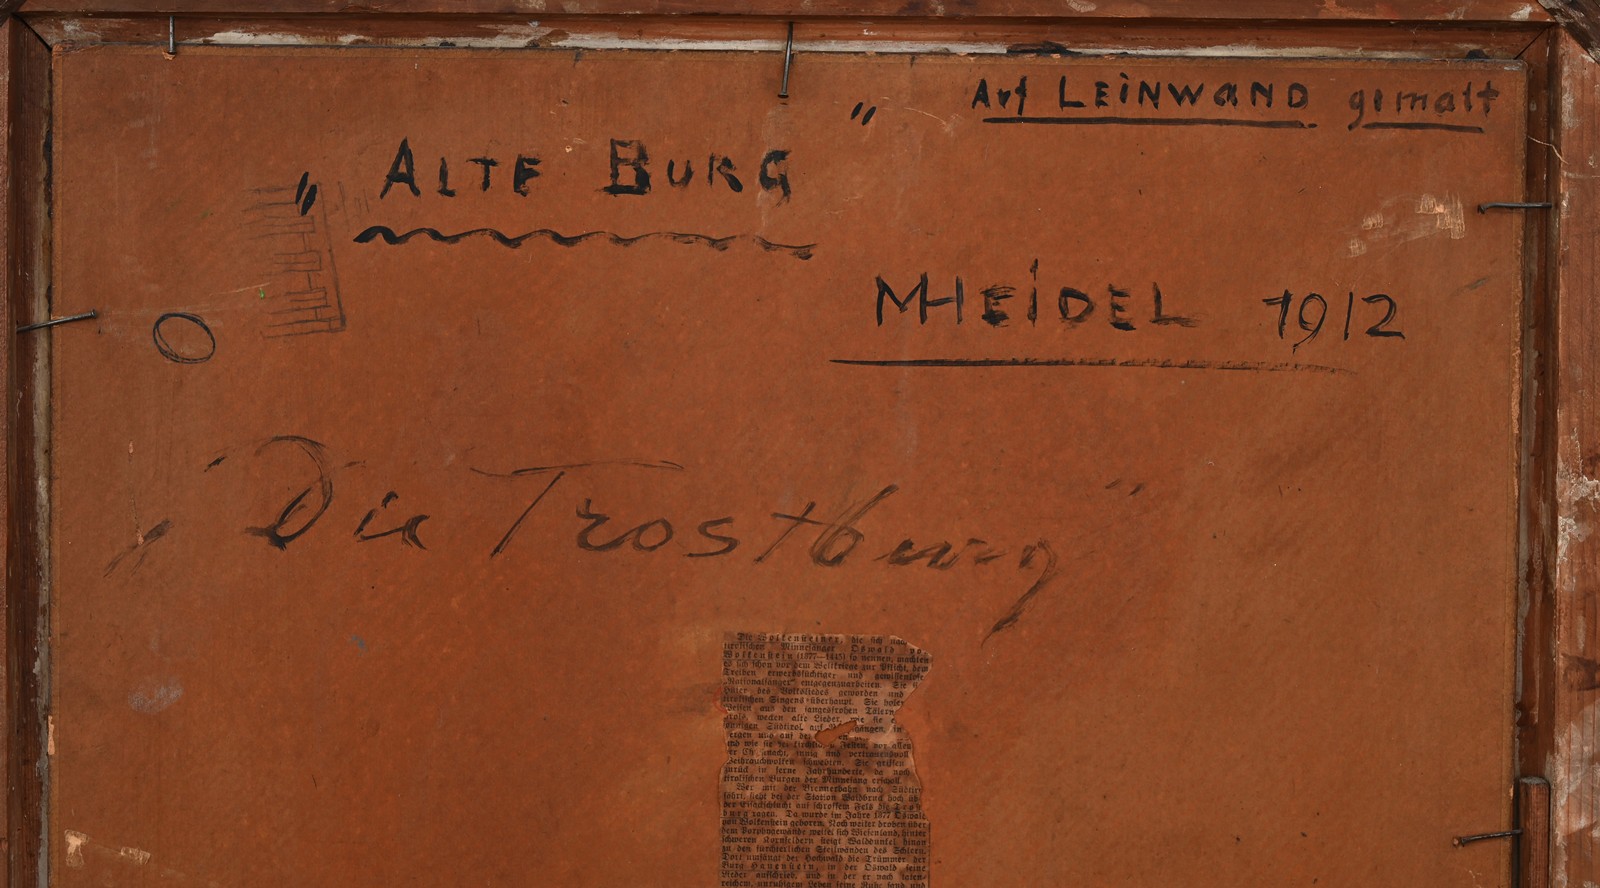 Auf LEINWAND gemalt
„ALTE BURG"
MHEIDEL 1912
„Die Trostburg"
Die Wolkensteiner, die sich nach
tirolischen Minnesänger Oswald vo
Wolkenstein (1377—1445) so nennen, machten
es sich schon vor dem Weltkriege zur Pflicht, dem
Treiben erwerbssüchtiger und gewissenlose
„Nationalsänger" entgegenzuarbeiten. Sie
des Volksliedes geworden und
tirolischen Singens überhaupt. Sie
Weisen aus den sangesfrohen Tälern
wecken alte Lieder, wie sie
Südtirol auf in
und auf
und wie sie Festen, vor allem
innig und vertrauensvoll
Weihrauchwolken schwebten. Sie grüßen
zurück in ferne Jahrhunderte, da noch
tirolischen Burgen der Minnesang erscholl.
Wer mit der Brennerbahn nach Südtirol
fährt, sieht bei der Station Waidbruck hoch ob
der Eisackschlucht auf schroffem Fels die Trost
burg ragen. Da wurde im Jahre 1377 Oswald
von Wolkenstein geboren. Noch weiter droben über
dem Porphyrgewände zweitel sich Wiesenland, hinter
schweren Kornfeldern steigt Walddunkel hinan
zu den fürchterlichen Steilwänden des Schlern.
Dort umfängt der Hochwald die Trümmer der
Burg Hauenstein, in der Oswald seine
Lieder aufschrieb, und in der er nach
reichem, unruhigem Leben seine Ruhe fand und